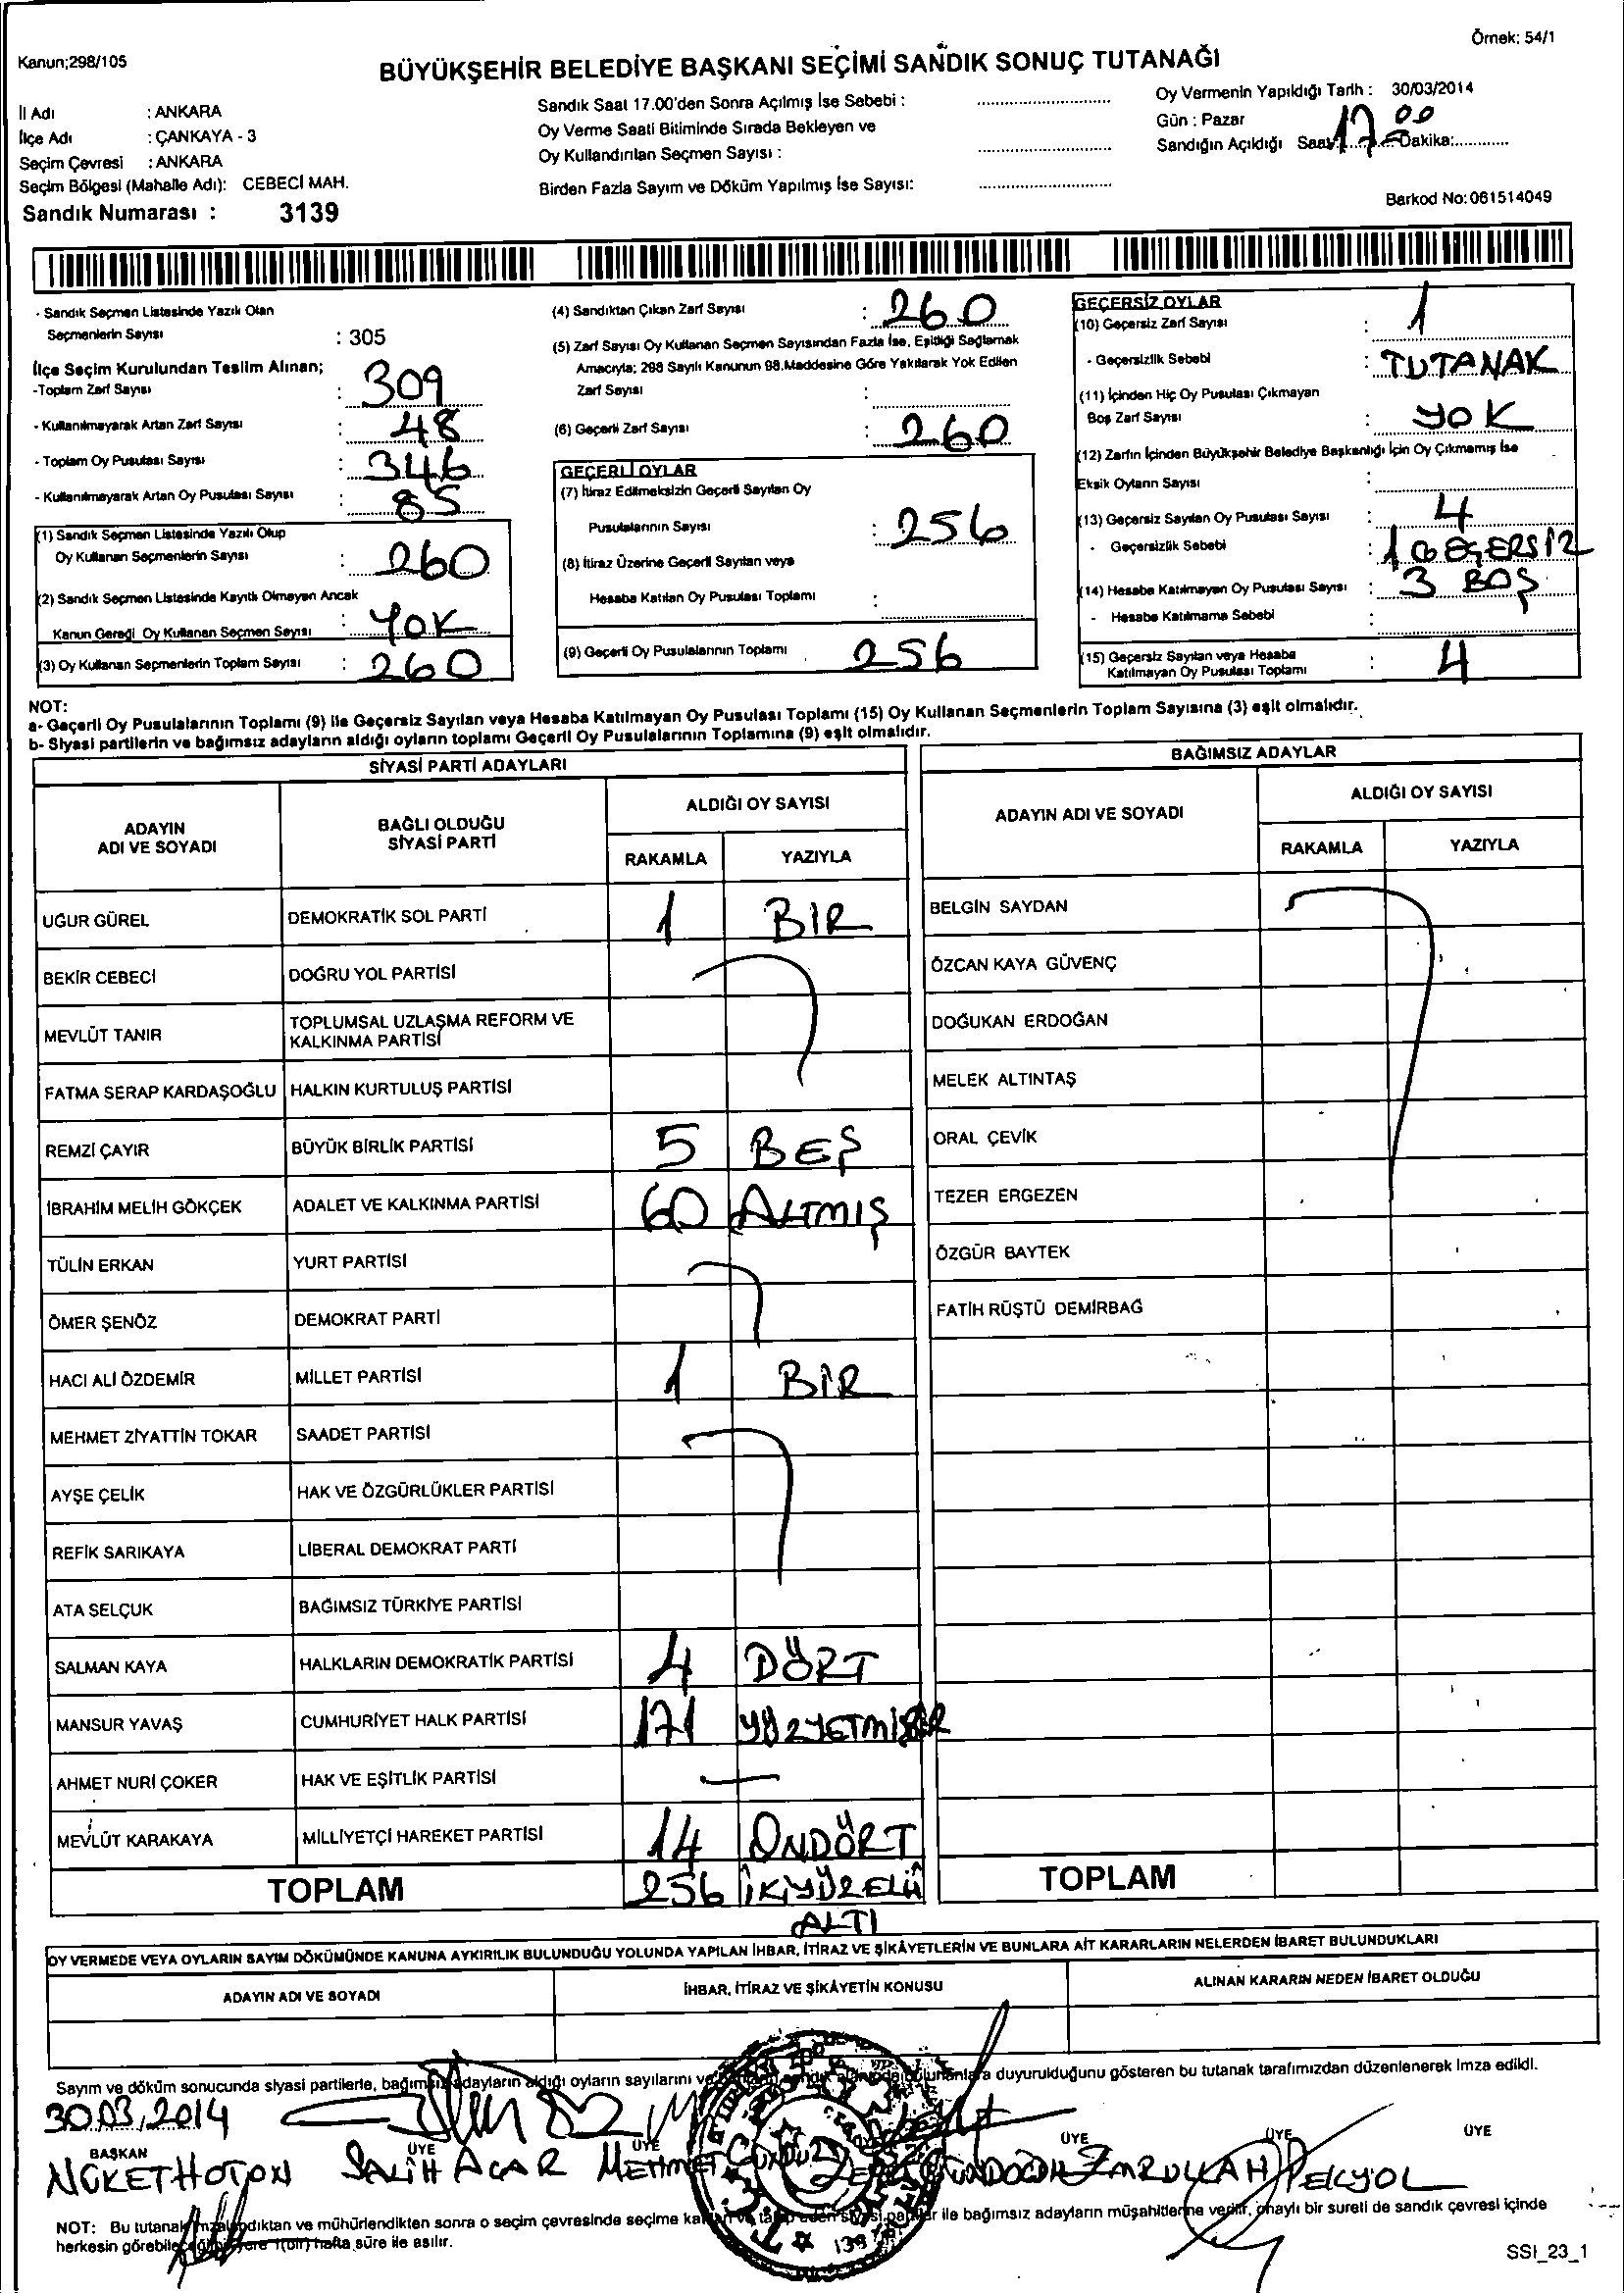 Kanun;298/105
Örnek: 54/1
BÜYÜKŞEHİR BELEDİYE BAŞKANI SEÇİMİ SANDIK SONUÇ TUTANAĞI
İl Adı : ANKARA
İlçe Adı : ÇANKAYA - 3
Seçim Çevresi : ANKARA
Seçim Bölgesi (Mahalle Adı): CEBECİ MAH.
Sandık Numarası : 3139
Sandık Saat 17.00'den Sonra Açılmış İse Sebebi :
Oy Verme Saati Bitiminde Sırada Bekleyen ve
Oy Kullandırılan Seçmen Sayısı :
Birden Fazla Sayım ve Döküm Yapılmış İse Sayısı:
Oy Vermenin Yapıldığı Tarih : 30/03/2014
Gün : Pazar
Sandığın Açıldığı Saat 17 Dakika: 00
Barkod No:061514049
- Sandık Seçmen Listesinde Yazılı Olan
Seçmenlerin Sayısı : 305
İlçe Seçim Kurulundan Teslim Alınan;
-Toplam Zarf Sayısı : 309
- Kullanılmayarak Artan Zarf Sayısı : 48
- Toplam Oy Pusulası Sayısı : 346
- Kullanılmayarak Artan Oy Pusulası Sayısı : 85
(1) Sandık Seçmen Listesinde Yazılı Olup
Oy Kullanan Seçmenlerin Sayısı : 260
(2) Sandık Seçmen Listesinde Kayıtlı Olmayan Ancak
Kanun Gereği Oy Kullanan Seçmen Sayısı : YOK
(3) Oy Kullanan Seçmenlerin Toplam Sayısı : 260
(4) Sandıktan Çıkan Zarf Sayısı : 260
(5) Zarf Sayısı Oy Kullanan Seçmen Sayısından Fazla İse, Eşitliği Sağlamak
Amacıyla; 298 Sayılı Kanunun 98.Maddesine Göre Yakılarak Yok Edilen
Zarf Sayısı :
(6) Geçerli Zarf Sayısı : 260
GEÇERLİ OYLAR
(7) İtiraz Edilmeksizin Geçerli Sayılan Oy
Pusulalarının Sayısı : 256
(8) İtiraz Üzerine Geçerli Sayılan veya
Hesaba Katılan Oy Pusulası Toplamı :
(9) Geçerli Oy Pusulalarının Toplamı 256
GEÇERSİZ OYLAR
(10) Geçersiz Zarf Sayısı : 1
- Geçersizlik Sebebi : TUTANAK
(11) İçinden Hiç Oy Pusulası Çıkmayan
Boş Zarf Sayısı : YOK
(12) Zarfın İçinden Büyükşehir Belediye Başkanlığı İçin Oy Çıkmamış İse
Eksik Oyların Sayısı :
(13) Geçersiz Sayılan Oy Pusulası Sayısı : 4
- Geçersizlik Sebebi : 1 GEÇERSİZ
(14) Hesaba Katılmayan Oy Pusulası Sayısı : 3 BOŞ
- Hesaba Katılmama Sebebi :
(15) Geçersiz Sayılan veya Hesaba
Katılmayan Oy Pusulası Toplamı : 4
NOT:
a- Geçerli Oy Pusulalarının Toplamı (9) ile Geçersiz Sayılan veya Hesaba Katılmayan Oy Pusulası Toplamı (15) Oy Kullanan Seçmenlerin Toplam Sayısına (3) eşit olmalıdır.
b- Siyasi partilerin ve bağımsız adayların aldığı oyların toplamı Geçerli Oy Pusulalarının Toplamına (9) eşit olmalıdır.
SİYASİ PARTİ ADAYLARI
ADAYIN ADI VE SOYADI
BAĞLI OLDUĞU SİYASİ PARTİ
ALDIĞI OY SAYISI
RAKAMLA YAZIYLA
UĞUR GÜREL DEMOKRATİK SOL PARTİ 1 BİR
BEKİR CEBECİ DOĞRU YOL PARTİSİ
MEVLÜT TANIR TOPLUMSAL UZLAŞMA REFORM VE
KALKINMA PARTİSİ
FATMA SERAP KARDAŞOĞLU HALKIN KURTULUŞ PARTİSİ
REMZİ ÇAYIR BÜYÜK BİRLİK PARTİSİ 5 BEŞ
İBRAHİM MELİH GÖKÇEK ADALET VE KALKINMA PARTİSİ 60 ALTMIŞ
TÜLİN ERKAN YURT PARTİSİ
ÖMER ŞENÖZ DEMOKRAT PARTİ
HACI ALİ ÖZDEMİR MİLLET PARTİSİ 1 BİR
MEHMET ZİYATTİN TOKAR SAADET PARTİSİ
AYŞE ÇELİK HAK VE ÖZGÜRLÜKLER PARTİSİ
REFİK SARIKAYA LİBERAL DEMOKRAT PARTİ
ATA SELÇUK BAĞIMSIZ TÜRKİYE PARTİSİ
SALMAN KAYA HALKLARIN DEMOKRATİK PARTİSİ 4 DÖRT
MANSUR YAVAŞ CUMHURİYET HALK PARTİSİ 171 YÜZYETMİŞBİR
AHMET NURİ ÇOKER HAK VE EŞİTLİK PARTİSİ —
MEVLÜT KARAKAYA MİLLİYETÇİ HAREKET PARTİSİ 14 ONDÖRT
TOPLAM 256 İKİYÜZELLİ
ALTI
BAĞIMSIZ ADAYLAR
ADAYIN ADI VE SOYADI
ALDIĞI OY SAYISI
RAKAMLA YAZIYLA
BELGİN SAYDAN
ÖZCAN KAYA GÜVENÇ
DOĞUKAN ERDOĞAN
MELEK ALTINTAŞ
ORAL ÇEVİK
TEZER ERGEZEN
ÖZGÜR BAYTEK
FATİH RÜŞTÜ DEMİRBAĞ
TOPLAM
OY VERMEDE VEYA OYLARIN SAYIM DÖKÜMÜNDE KANUNA AYKIRILIK BULUNDUĞU YOLUNDA YAPILAN İHBAR, İTİRAZ VE ŞİKÂYETLERİN VE BUNLARA AİT KARARLARIN NELERDEN İBARET BULUNDUKLARI
ADAYIN ADI VE SOYADI
İHBAR, İTİRAZ VE ŞİKÂYETİN KONUSU
ALINAN KARARIN NEDEN İBARET OLDUĞU
Sayım ve döküm sonucunda siyasi partilerle, bağımsız adayların aldığı oyların sayılarını duyurulduğunu gösteren bu tutanak tarafımızdan düzenlenerek imza edildi.
30.03.2014
BAŞKAN ÜYE ÜYE ÜYE ÜYE ÜYE
NÜKET SALİH ACAR MEHMET GÜNDÜZ GÜNDOĞDU EMRULLAH PEKYOL
NOT: Bu tutanak imzalandıktan ve mühürlendikten sonra o seçim çevresinde seçime ile bağımsız adayların müşahitlerine verilir, onaylı bir sureti de sandık çevresi içinde
herkesin görebileceği yere 1(bir) hafta süre ile asılır.
SSI_23_1